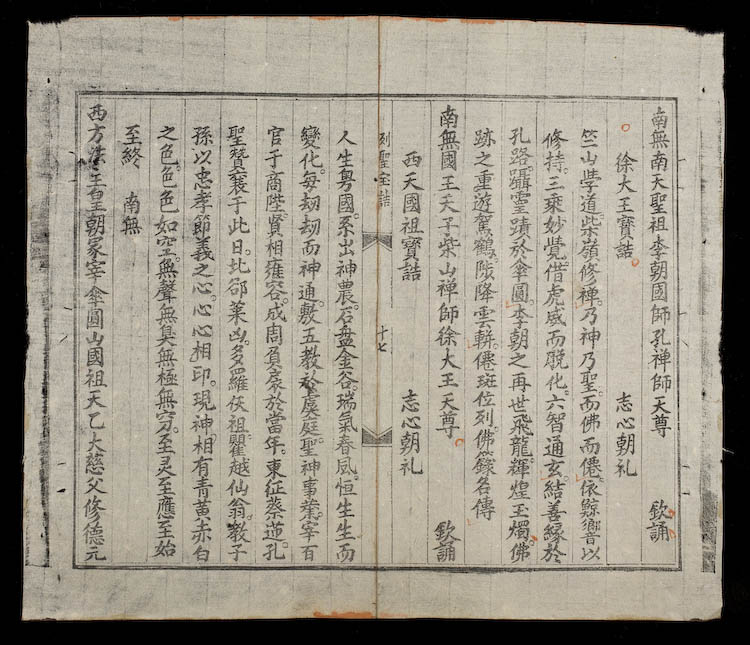 南無南天聖祖李朝國師孔禅師天尊 欽誦
徐大王寳誥 志心朝礼
竺山學道。柴嶺修禅。乃神乃聖。而佛而僊。依鯨響以
修持。三乘妙覺。借虎威而脱化。六智通玄。結善緣於
孔路。躡靈蹟於傘圓。李朝之再世飛龍。輝煌玉燭。佛
跡之重遊駕鶴。陟降雲軿。僊班位列。佛籙名傳
南無國王天子柴山禅師徐大王天尊 欽誦
西天國祖寳誥 志心朝礼
列聖宝誥 十七
人生粤國。系出神農。石盘金谷。瑞氣春凨。恒生生而
變化。每刼刼而神通。敷五教於虞庭。聖神事業。宰百
官于商陛。賢相雍容。成周負扆於當年。東征蔡
聖贊袠于此日。北郤萊凶。多羅俠祖。瞿越仙翁。教子
孫以忠孝節義之心。心心相印。現神相有青黄赤白
之色。色色如空。無聲無臭。無極無穷。至灵至應。至始
至終 南無
西方 皇朝冢宰傘圓山國祖天乙大慈父修德元